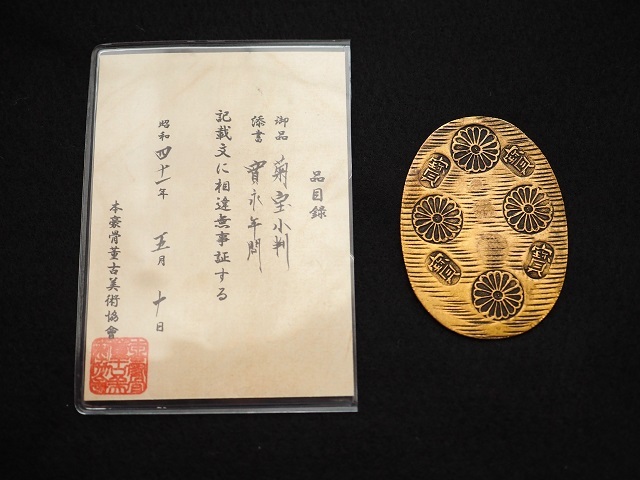 品目録
御品 菊宝小判
添書 寳永年間
記載文に相違無事証する
昭和四十一年 五月 十日
本豪骨董古美術協會